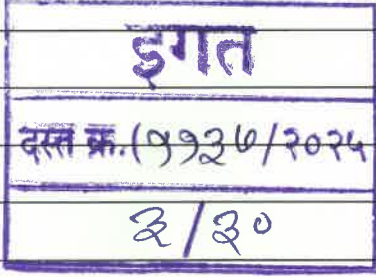 इगत
दस्त क्र.(११३७/२०२५
३/३०